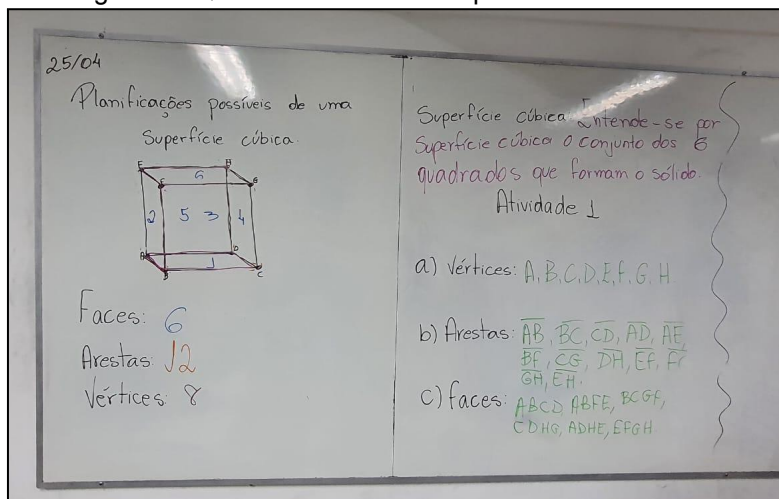 25/04
Planificações possíveis de uma
Superfície cúbica.
E H
F G
6
2 5 3 4
A D
1
B C
Faces: 6
Arestas: 12
Vértices: 8
Superfície cúbica Entende-se por
Superfície cúbica o conjunto dos 6
quadrados que formam o sólido.
Atividade 1
a) Vértices: A, B, C, D, E, F, G, H
b) Arestas: AB, BC, CD, AD, AE,
BF, CG, DH, EF,
GH, EH.
c) faces: ABCD, ABFE, BCGF,
CDHG, ADHE, EFGH